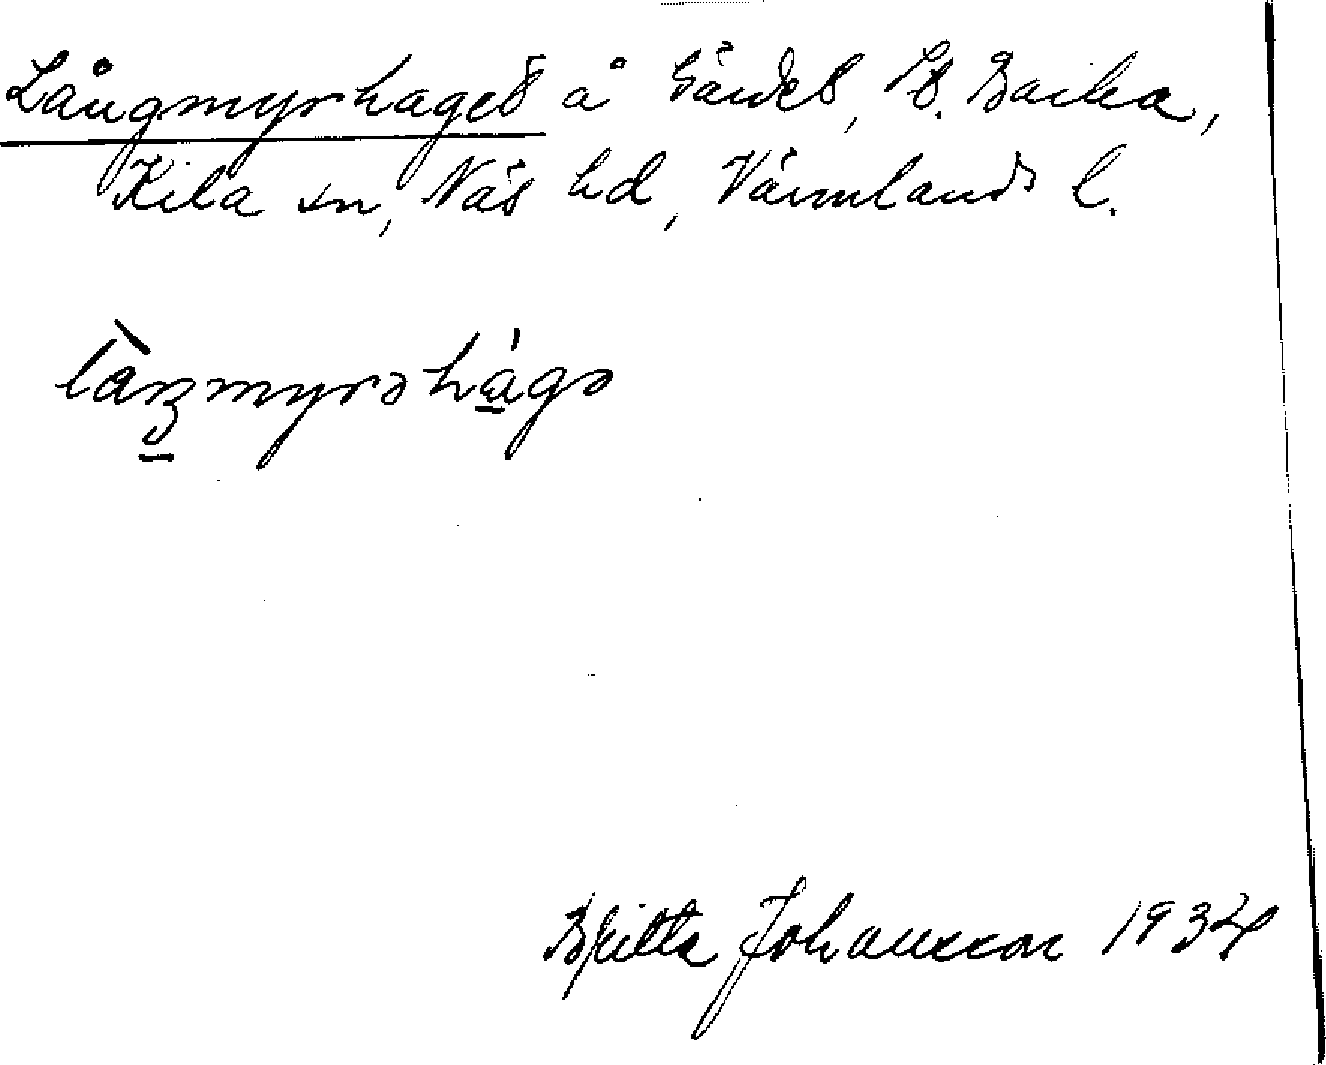 Långmyrhaget å Gärdet, St. Backa,
Kila sn, Näs hd, Värmlands l.
Britta Johansson 1934